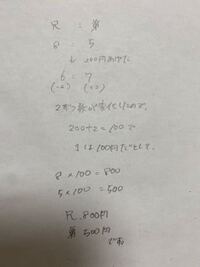 兄 = 弟
8 = 5
↓ 200円あげた
6 = 7
(-2) (+2)
2ずつ数が変化したので、
200÷2=100で
1は100円だとして、
8×100=800
5×100=500
兄、800円
弟 500円
です